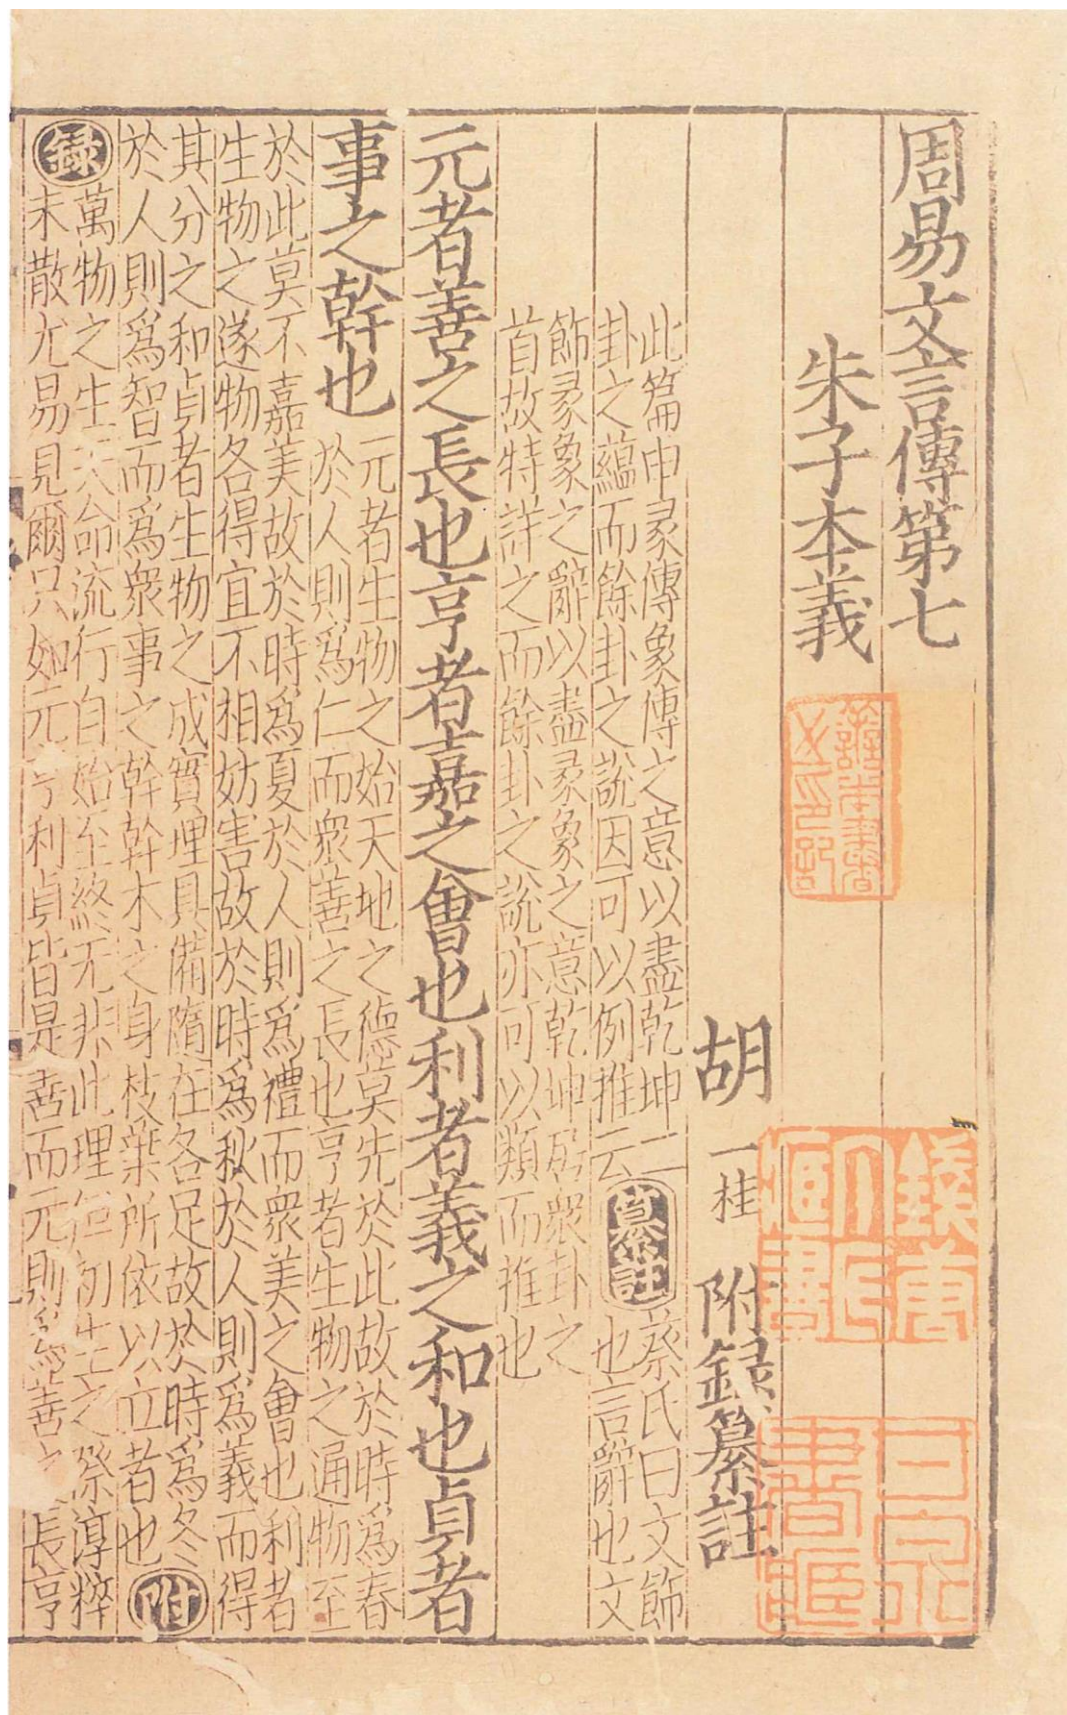 周易文言傳第七
朱子本義
胡一桂附録纂註
此篇申彖傳象傳之意以盡乾坤二
卦之蘊而餘卦之說因可以例推云纂註蔡氏曰文飾
也言辭也文
飾彖象之辭以盡彖象之意乾坤居衆卦之
首故特詳之而餘卦之說亦可以類而推也
元者善之長也亨者嘉之會也利者義之和也貞者
事之幹也
元者生物之始天地之德莫先於此故於時爲春
於人則爲仁而衆善之長也亨者生物之通物至
於此莫不嘉美故於時爲夏於人則爲禮而衆美之會也利者
生物之遂物各得宜不相妨害故於時爲秋於人則爲義而得
其分之和貞者生物之成實理具備隨在各足故於時爲冬
於人則爲智而爲衆事之幹幹木之身枝葉所依以立者也附
録
萬物之生天命流行自始至終无非此理但初生之際淳粹
未散尤易見爾只如元亨利貞皆是善而元則爲善之長亨